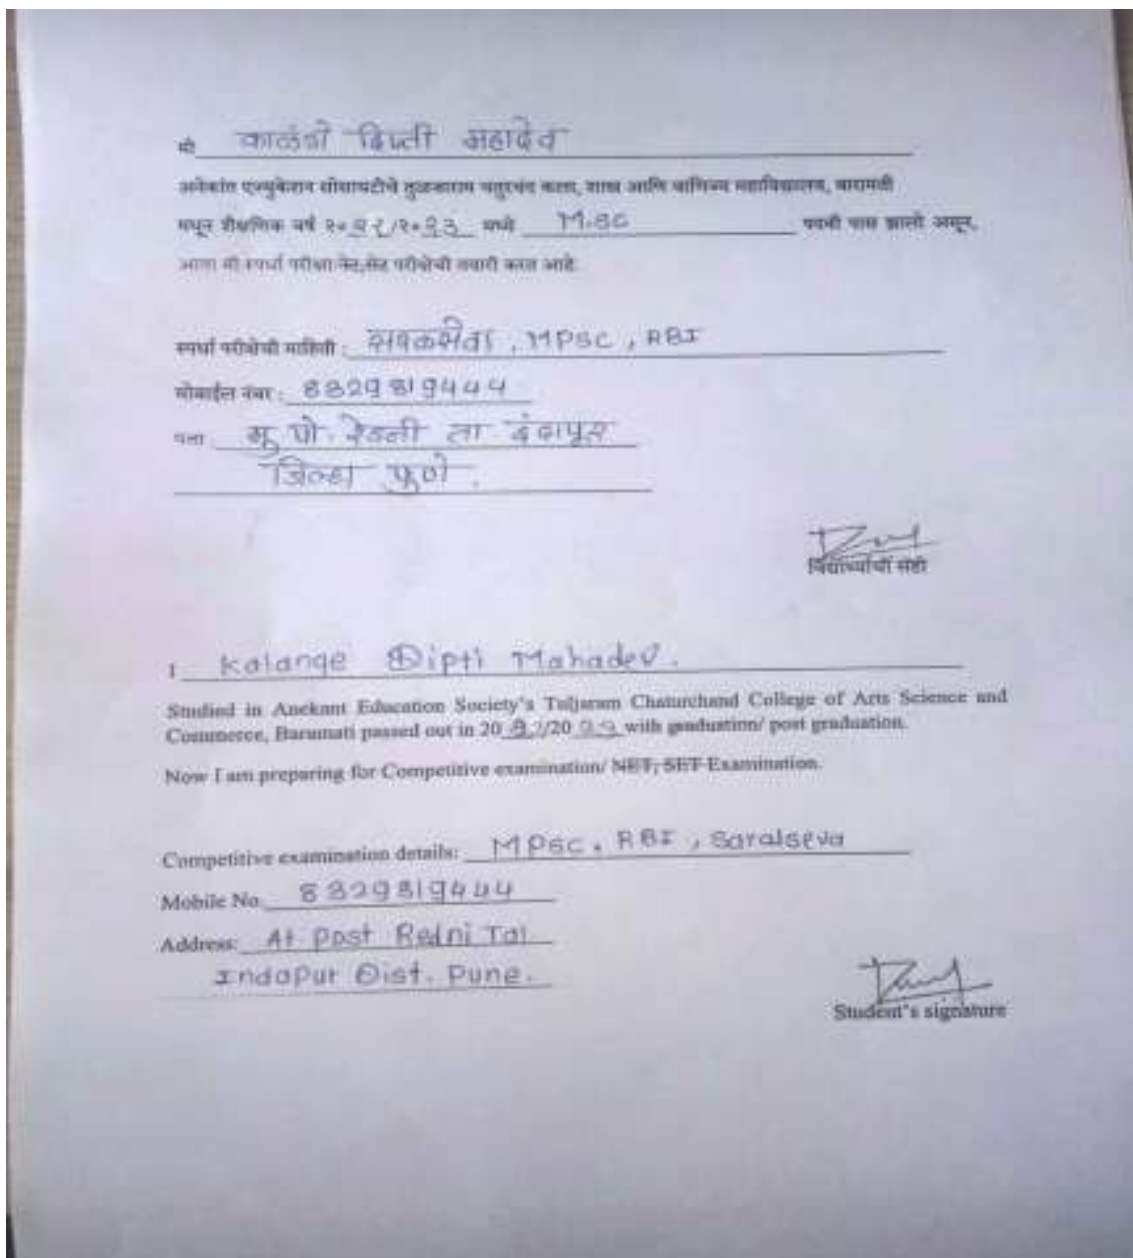 मी काळंगे दिप्ती महादेव
अनेकांत एज्युकेशन सोसायटीचे तुळजाराम चतुरचंद कला, शास्त्र आणि वाणिज्य महाविद्यालय, बारामती
मधून शैक्षणिक वर्ष २० /२०२३ मध्ये M.SC पदवी पास झालो असून,
आता मी स्पर्धा परीक्षा/नेट,सेट परीक्षेची तयारी करत आहे.
स्पर्धा परीक्षेची माहिती : , MPSC, RBI
मोबाईल नंबर : 8829819444
पत्ता मु. पो. रेडनी ता इंदापूर
जिल्हा पुणे.
विद्यार्थ्याची सही
I Kalange Dipti Mahadev.
Studied in Anekant Education Society's Tuljaram Chaturchand College of Arts Science and
Commerce, Baramati passed out in 20 /20 with graduation/ post graduation.
Now I am preparing for Competitive examination/ NET, SET Examination.
Competitive examination details: MPSC, RBI, Saralseva
Mobile No. 8829819444
Address: At Post Redni Tal.
Indapur Dist. Pune.
Student's signature